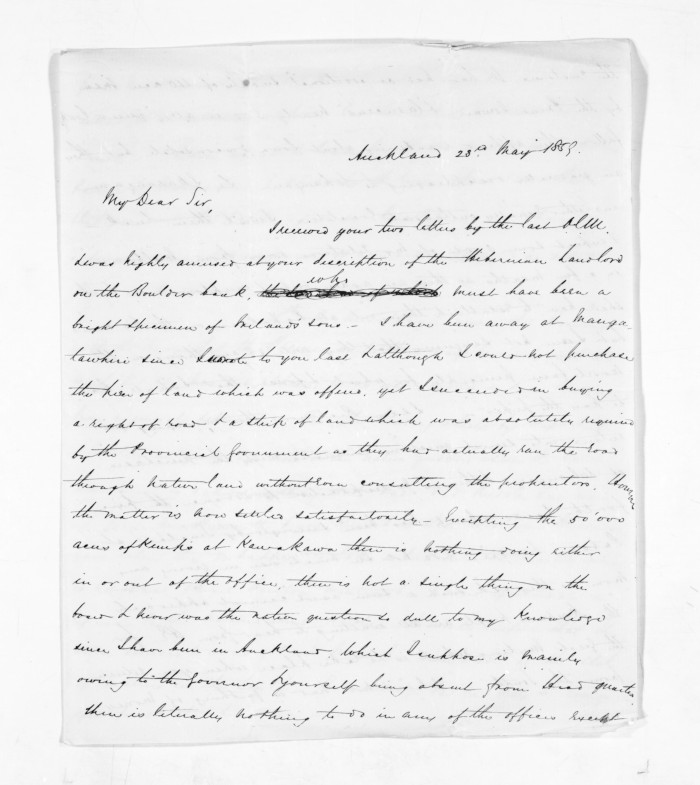 Auckland 23rd May 1859.
My Dear Sir,
I received your two letters by the last O.M.
& was highly amused at your description of the Hibernian Landlord
on the Boulder bank, who by must have been a
bright specimen of Ireland's sons – I have been away at Manga-
tawhiri since I wrote to you last & although I could not purchase
the piece of land which was offered, yet I succeeded in buying
a right of road & a strip of land which was absolutely required
by the Provincial Government as they had actually ran the road
through native land without even consulting the proprietors. However
the matter is now settled satisfactorily – Excepting the 50'000
acres of Kemps at Kawakawa there is nothing doing either
in or out of the office, there is not a single thing on the
board & never was the native question so dull to my Knowledge
since I have been in Auckland, which I suppose is mainly
owing to the Governor & yourself being absent from Head quarters
there is literally nothing to do in any of the offices except